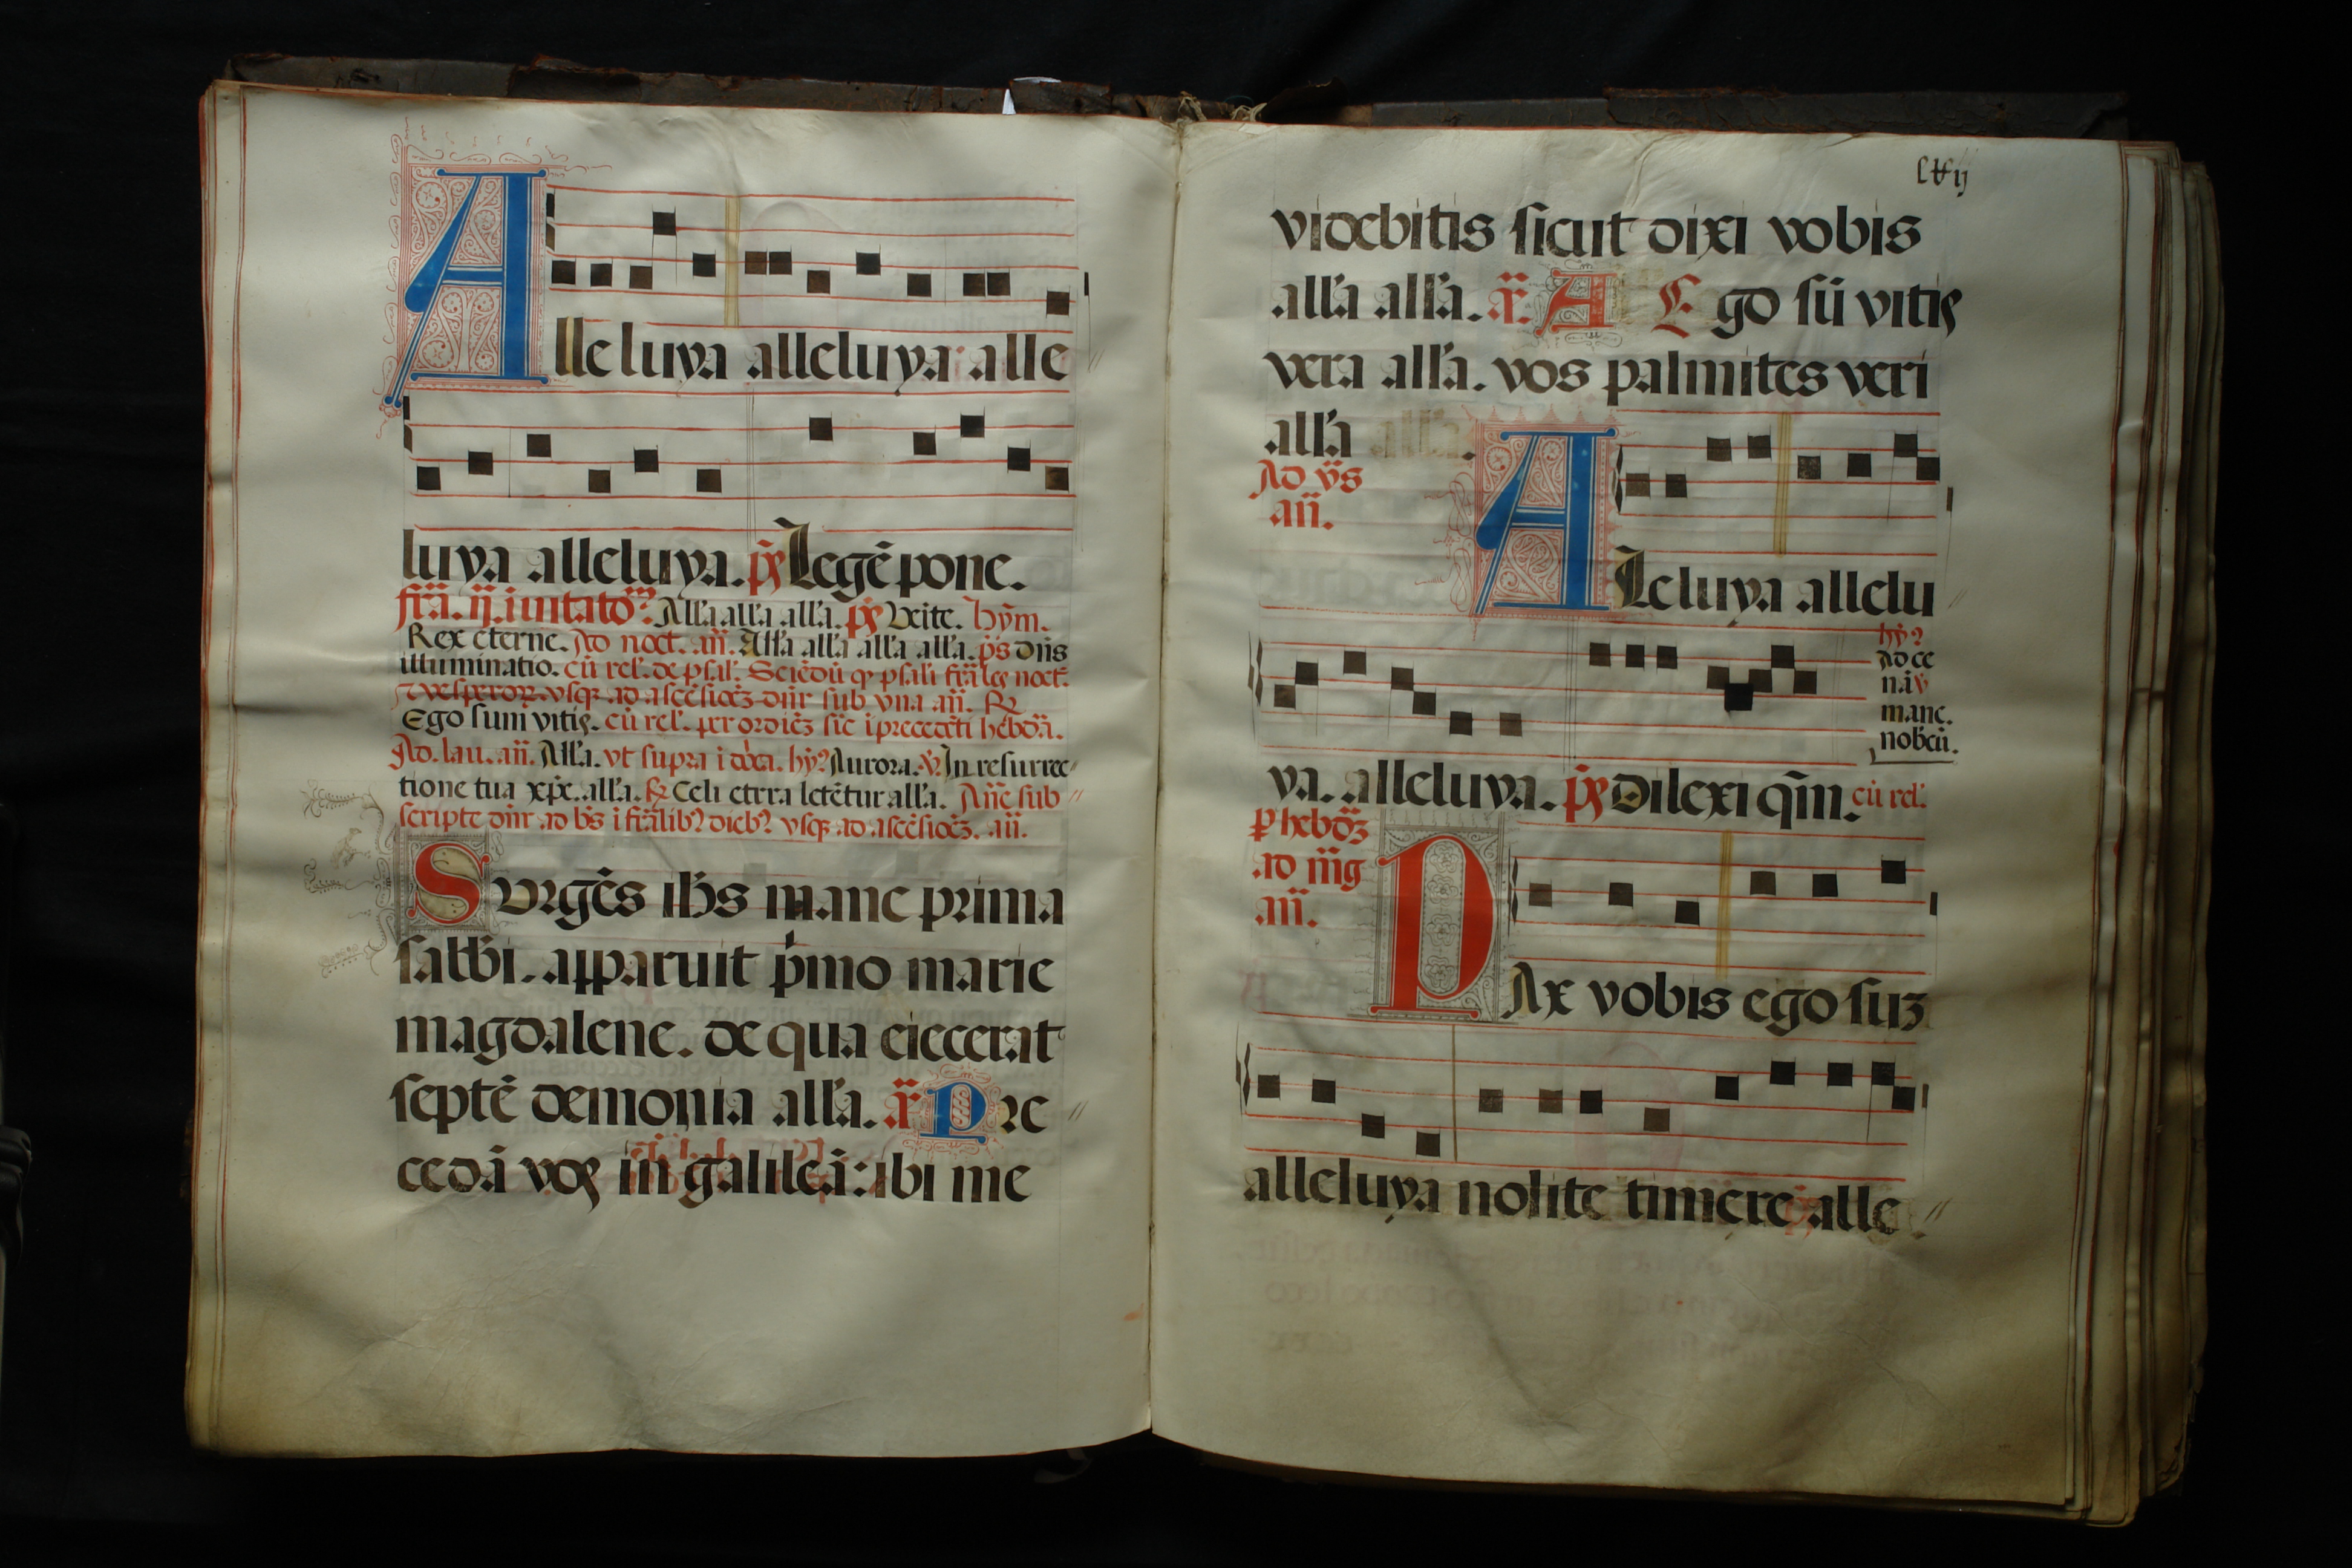 Alleluya alleluya alle
luya alleluya. p̄s Legē pone.
fr̄a. ij. inuitatoꝝ. All'a all'a all'a. p̄s Uēite. hȳm.
Rex eterne. Ad noct. an̄. All'a all'a all'a all'a. p̄s dn̄s
illuminatio. cū rel'. de psal'. Sciēdū qꝫ psal'i fr̄ales noct.
⁊ vesperoꝝ. vsqꝫ ad ascēsiōeꝫ dn̄r sub vna an̄. ℟
Ego sum vitis. cū rel'. per ordiēꝫ sic i precedēti hebdōa.
Ad. lau. an̄. All'a. vt supra i dōca. hy? Aurora. ℣. In resurrec
tione tua xp̄e. all'a. ℟ Celi et terra letētur all'a. An̄e sub
scripte dn̄r ad bn̄s i fr̄alib? dieb? vsqꝫ ad ascēsiōeꝫ. an̄.
Surgēs ih̄s mane prima
sabb'i. apparuit p̄mo marie
magdalene. de qua eiecerat
septē demonia all'a. an̄ Pre
cedā vos in galileā: ibi me
lxij
videbitis sicut dixi vobis
all'a all'a. an̄ A Ego sū vitis
vera all'a. vos palmites veri
all'a
Ad vs̄
an̄.
Aleluya allelu
hy?
Ad ce
nā ꝟ
mane.
nob'cū.
ya. alleluya. p̄s Dilexi qm̄. cū rel'.
P hebdōꝫ
ad m̄g
an̄.
PAx vobis ego suꝫ
alleluya nolite timere alle